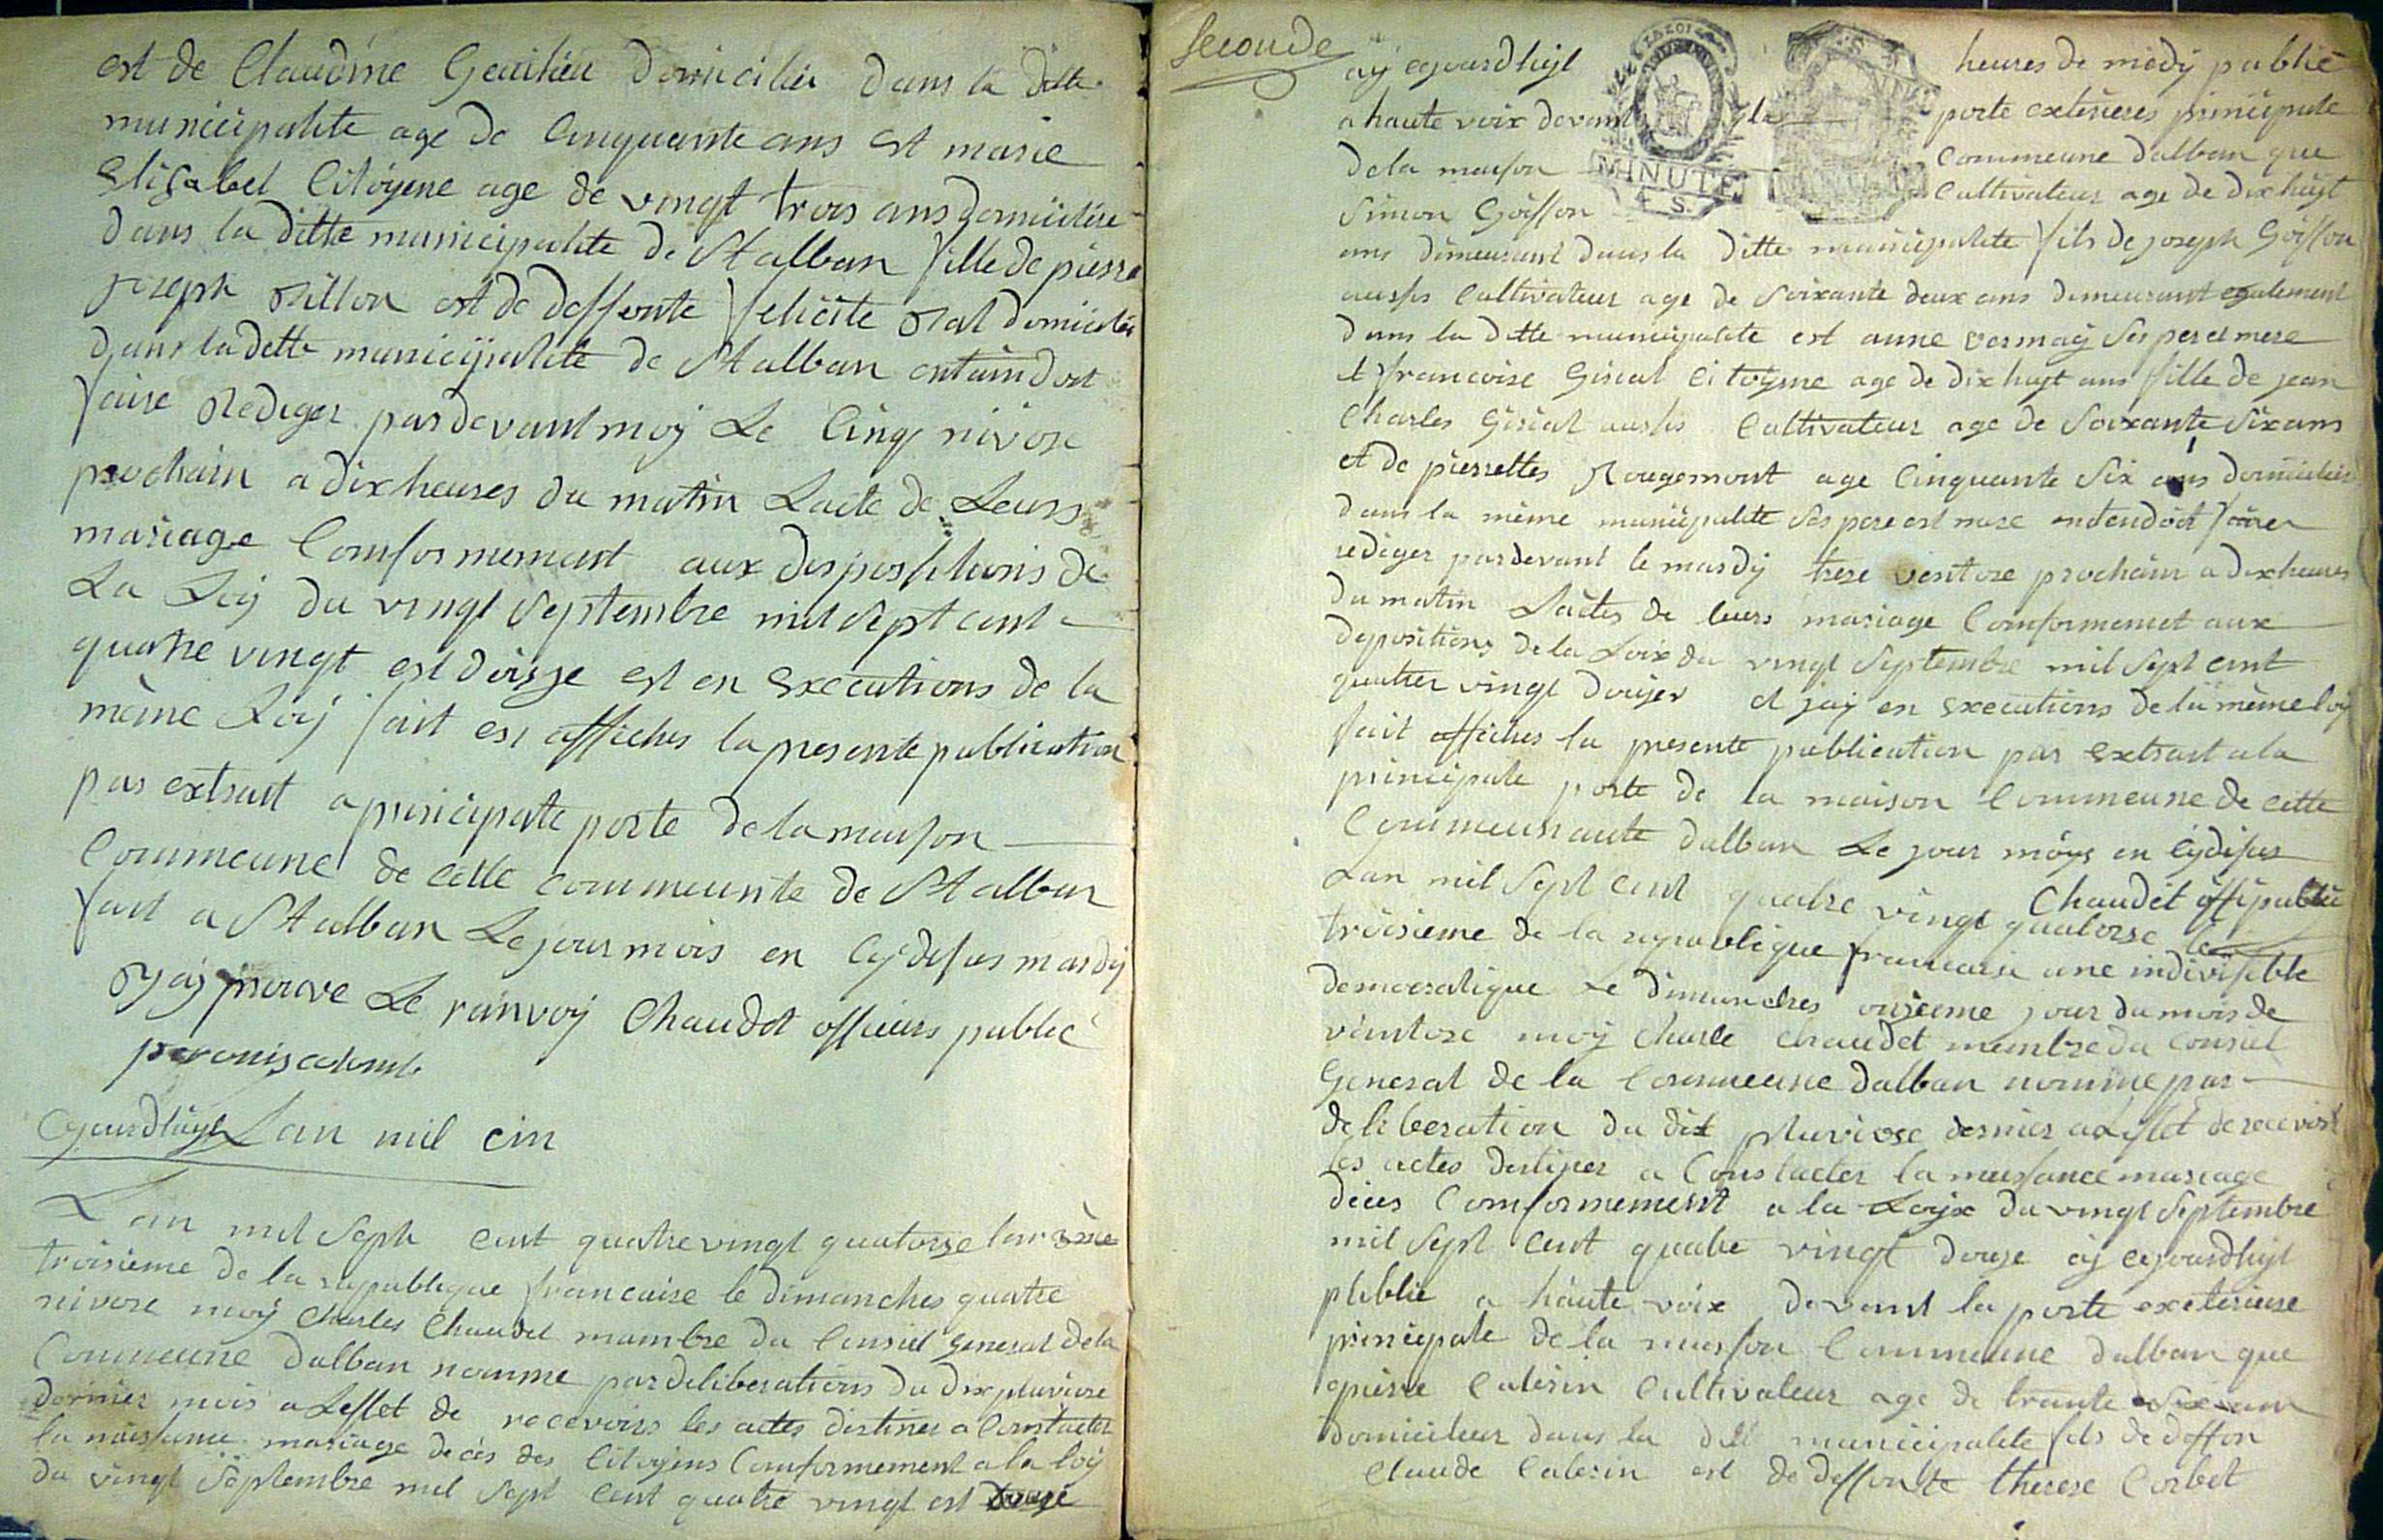 est de Claudine Gauthier domicilier dans la ditte
municipalite age de Cinquante ans est marie
Elisabel Citoyene age de vingt trois ans domiciliee
dans la ditte municipalite de St alban fille de pierre
joseph rillon est de deffente felicite domicilie
dans ladette municipalite de St alban entaindont
faire Rediger pardevant moy Le Cinq nivose
prochain a dix heures du matin Lacte de Leurs
mariage Comformement aux
La Loy du vingt Septembre mil Sept cent
quatre vingt est doisze est en Executions de la
mème Loy fait est affiches la presente publication
par extrait a principate porte de la maison
Commeune de cette commeunte de St alban
fait a St alban Le jour mois en Cy desus mardy
Le ranvoy Chaudet officiers public
Cejourdhuyt Lan mil cin
Lan mil Seph cent quatre vingt quatorze lan
troisieme de la republique francaise le dimanches quatre
nivose moy Charles Chaudet mambre du Consiel General de la
Commeune dalban nomme par deliberations du dix pluviose
dernier mois a Leffet de recevoirs les actes destines a Constacter
la naissance mariage deces des Citoyens Comformement a la loy
du vingt Septembre mil Sept Cent quatre vingt est douze
Seconde
ay cejourdhuyt heures de midy publié
a haute voix devant la porte exterieres principate
de la maison Commeune dalban que
Simon Goisson Cultivateur age de dixhuyt
ans dimeurant dans la ditte municipalite fils de joseph Goisson
aussis Cultivateur age de Soixante deux ans demeurant egalement
dans la ditte municipalite est anne vermay Ses peres mere
et francoise Girial Citoyene age de dix huyt ans fille de jean
Charles Girial aussis Cultivateur age de Soixante Six ans
et de pierrettes Rougemont age Cinquante Six ans domicilier
dans la mème municipalite Ses pere est mere entendoit faires
rediger pardevant le mardy trese ventose prochain a dix heures
du matin Lactes de leurs mariage Comformemet aux
depositions de la Loix du vingt Septembre mil Sept cent
quatrer vingt douzer et jay en Executions de la mème loy
fait affiches la presente publication par extrait a la
principate porte de la maison Commeune de cette
Commeunaute dalban Le jour moys en Cy desus
Chaudet offi public
Lan mil Sept cent quatre vingt quatorse le
troisieme de la republique francaise une indivisible
democratique Le dimanches onzieme jour du mois de
vèntose moy Charle Chaudet membre du Consiel
General de la Commeune dalban nomme par
deliberation du dix pluviose dernier a Leffet de recevoirs
les actes destiner a Constacter la naissance mariage
deces Comformement a la Loyx du vingt Septembre
mil Sept Cent quatre vingt douze ay cejourdhuyt
plublie a hàute voix devant la porte exeterieure
principate de la maison Commeune dalban que
pierre Calerin Cultivateur age de trante Six ans
domicilier dans la dite municipalite fils de deffon
Claude Calerin est de deffonte therese Corbet
MINUTE
4 S.